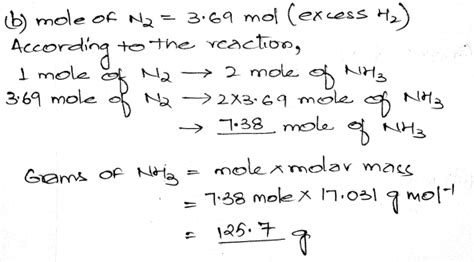 (b) mole of N₂ = 3.69 mol (excess H₂)
According to the reaction,
1 mole of N₂ → 2 mole of NH₃
3.69 mole of N₂ → 2×3.69 mole of NH₃
→ 7.38 mole of NH₃
Grams of NH₃ = mole × molar mass
= 7.38 mole × 17.031 g mol⁻¹
= 125.7 g